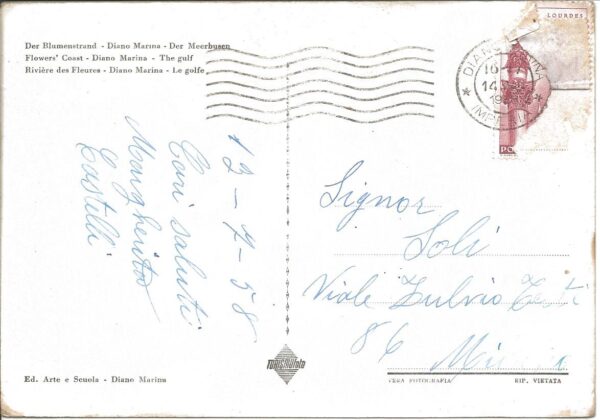 Der Blumenstrand - Diano Marina - Der Meerbusen
Flowers' Coast - Diano Marina - The gulf
Rivière des Fleures - Diano Marina - Le golfe
LOURDES
DIANO MARINA
16 - 7
IMPERIA
12 - 7 - 58
Cari saluti
Margherita
Castelli
Signor
Soli
Viale Fulvio Testi
86
Ed. Arte e Scuola - Diano Marina
VERA FOTOGRAFIA
RIP. VIETATA